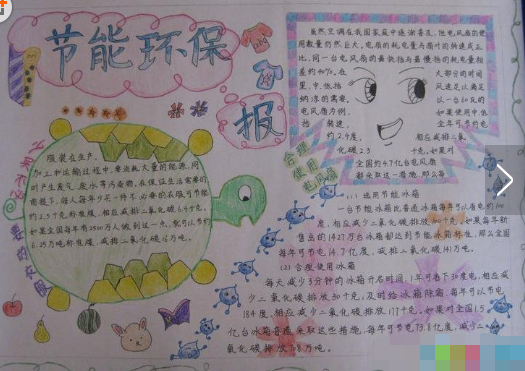 节能环保
报
合理使用电风扇
虽然空调在我国家庭中逐渐普及,但电风扇的使
用数量仍然巨大。电扇的耗电量与扇叶的转速成正
比,同一台电风扇的最快档与最慢档的耗电量相
差约40%。在
大部分的时间
里,中、低档
风速足以满足
纳凉的需要。
以一台60瓦的
电风扇为例,
如果使用中、低
档转速,
全年可节电
约2.4度,
相应减排二氧
化碳2.3
千克。如果对
全国约4.7亿台电风扇
都采取这一措施,那么每
服装在生产、
加工和运输过程中,要消耗大量的能源,同
时产生废气、废水等污染物。在保证生活需要的
前提下,每人每年少买一件不必要的衣服可节能
约2.5千克标准煤,相应减排二氧化碳6.4千克。
如果全国每年有2500万人做到这一点,就可以节约
6.25万吨标准煤,减排二氧化碳16万吨。
(1)选用节能冰箱
一台节能冰箱比普通冰箱每年可以省电约100
度,相应减少二氧化碳排放100千克。如果每年新
售出的1427万台冰箱都达到节能冰箱标准,那么全国
每年可节电14.7亿度,减排二氧化碳141万吨。
(2)合理使用冰箱
每天减少3分钟的冰箱开启时间,1年可省下30度电,相应减
少二氧化碳排放30千克;及时给冰箱除霜,每年可以节电
184度,相应减少二氧化碳排放177千克。如果对全国1.5
亿台冰箱普遍采取这些措施,每年可节电73.8亿度,减少二
氧化碳排放708万吨。